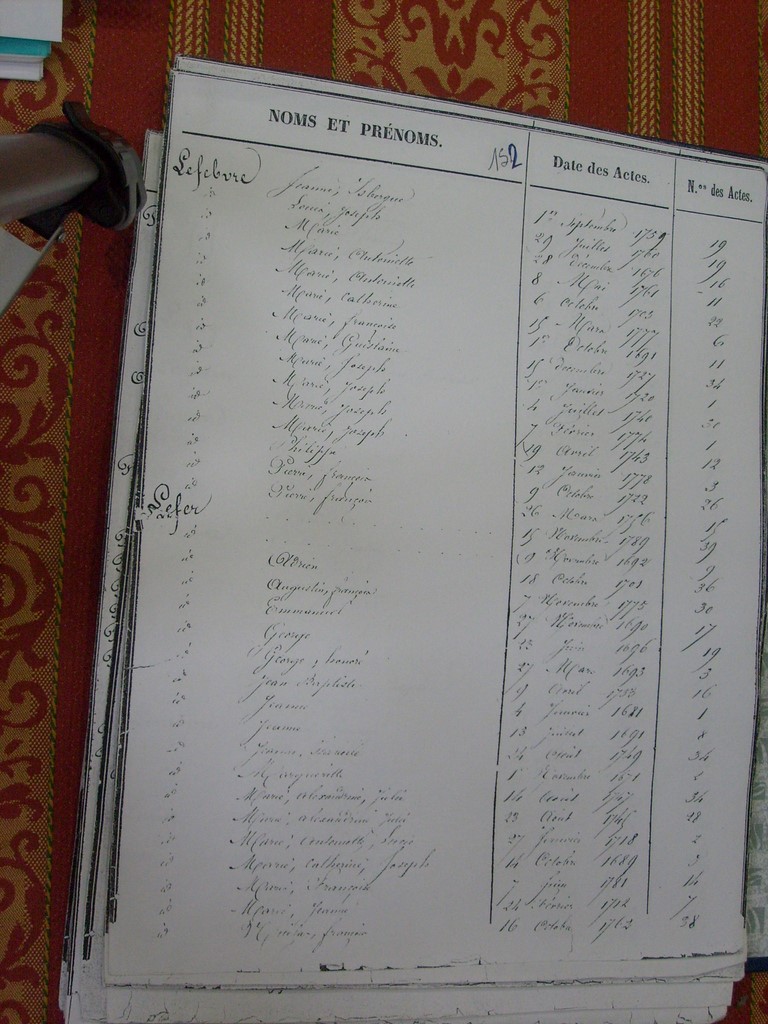 NOMS ET PRÉNOMS. 152 Date des Actes. N.os des Actes.
Lefebvre Jeanne, Isbergue 1er Septembre 1759 19
id Louis, Joseph 29 Juillet 1760 19
id Marie 28 décembre 1676 16
id Marie, Antoinette 8 Mai 1761 11
id Marie, Antoinette 6 octobre 1703 22
id Marie, Catherine 15 Mars 1777 6
id Marie, françoise 1er Octobre 1691 11
id Marie, Guislaine 15 décembre 1727 34
id Marie, Joseph 1er Janvier 1720 1
id Marie, Joseph 4 Juillet 1740 30
id Marie, Joseph 7 Février 1774 1
id Marie, Joseph 19 Avril 1743 12
id Philippe 12 Janvier 1778 3
id Pierre, françois 9 Octobre 1722 26
id Pierre, françois 26 Mars 1756 15
Lefer 15 Novembre 1789 39
id 9 Novembre 1692 9
id Adrien 18 Octobre 1701 36
id Augustin, françois 7 Novembre 1775 30
id Emmanuel 27 Novembre 1690 17
id George 23 Juin 1696 19
id George, honoré 27 Mars 1693 3
id Jean Baptiste 9 Avril 1733 16
id Jeanne 4 Janvier 1681 1
id Jeanne 13 1691 8
id Jeanne, 24 Août 1749 34
id Marguerite 1er Novembre 1671 2
id Marie, alexandrine, Julie 14 Août 1747 34
id Marie, alexandrine Julie 23 Août 1746 28
id Marie, antoinette, 27 Janvier 1718 2
id Marie, Catherine, Joseph 14 Octobre 1689 3
id Marie, Françoise 7 Juin 1781 14
id Marie, Jeanne 24 Février 1712 7
id françois 16 Octobre 1762 38